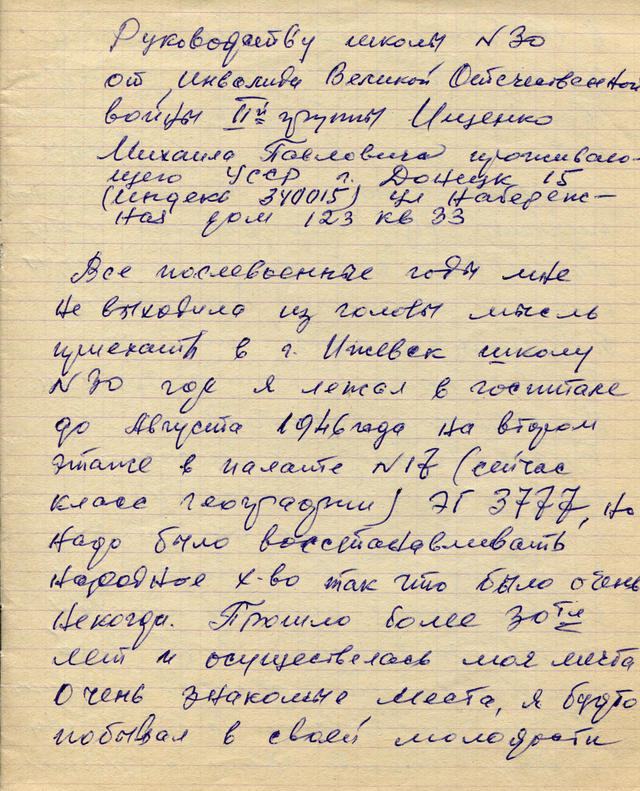 Руководству школы N 30
от инвалида Великой Отечественной
войны IIй группы Ищенко
Михаила Павловича проживаю-
щего УССР г. Донецк 15
(индекс 340015) ул Набереж-
ная дом 123 кв 33
Все послевоенные годы мне
не выходила из головы мысль
приехать в г. Ижевск школу
N 30 где я лежал в госпитале
до Августа 1946 года на втором
этаже в палате N 17 (сейчас
класс географии) ЭГ 3777, но
надо было восстанавливать
народное х-во так что было очень
некогда. Прошло более 30ти
лет и осуществелась моя мечта
Очень знакомые места, я будто
побывал в своей молодости